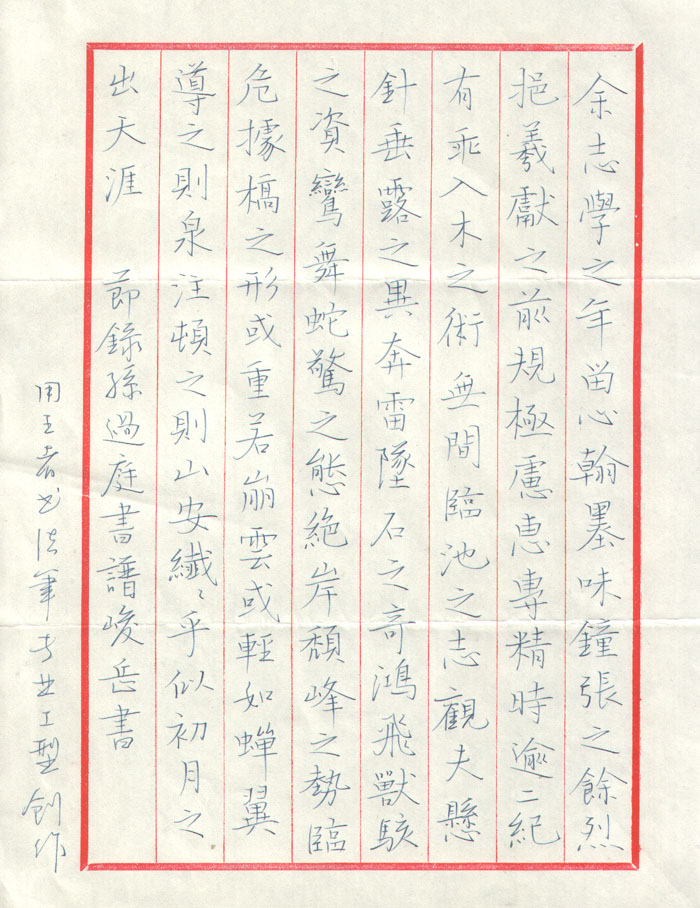 余志學之年畱心翰墨味鐘張之餘烈
挹羲獻之前規極慮惪專精時逾二紀
有乖入木之術無間臨池之志觀夫懸
針垂露之異奔雷墜石之奇鴻飛獸駭
之資鸞舞蛇驚之態絶岸頹峰之勢臨
危據槁之形或重若崩雲或輕如蟬翼
導之則泉注頓之則山安纖〻乎似初月之
出天涯 節錄孫過庭書譜峻岳書
用王者书法笔专业工型创作